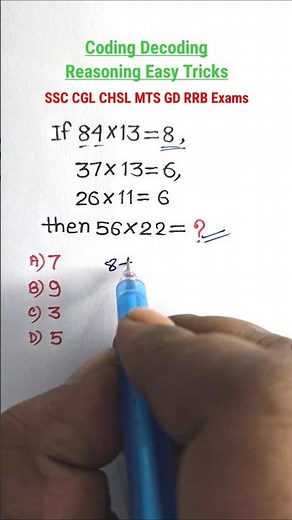 Coding Decoding
Reasoning Easy Tricks
SSC CGL CHSL MTS GD RRB Exams
If 84×13=8,
37×13=6,
26×11=6
then 56×22=?
A) 7
B) 9
C) 3
D) 5
8+